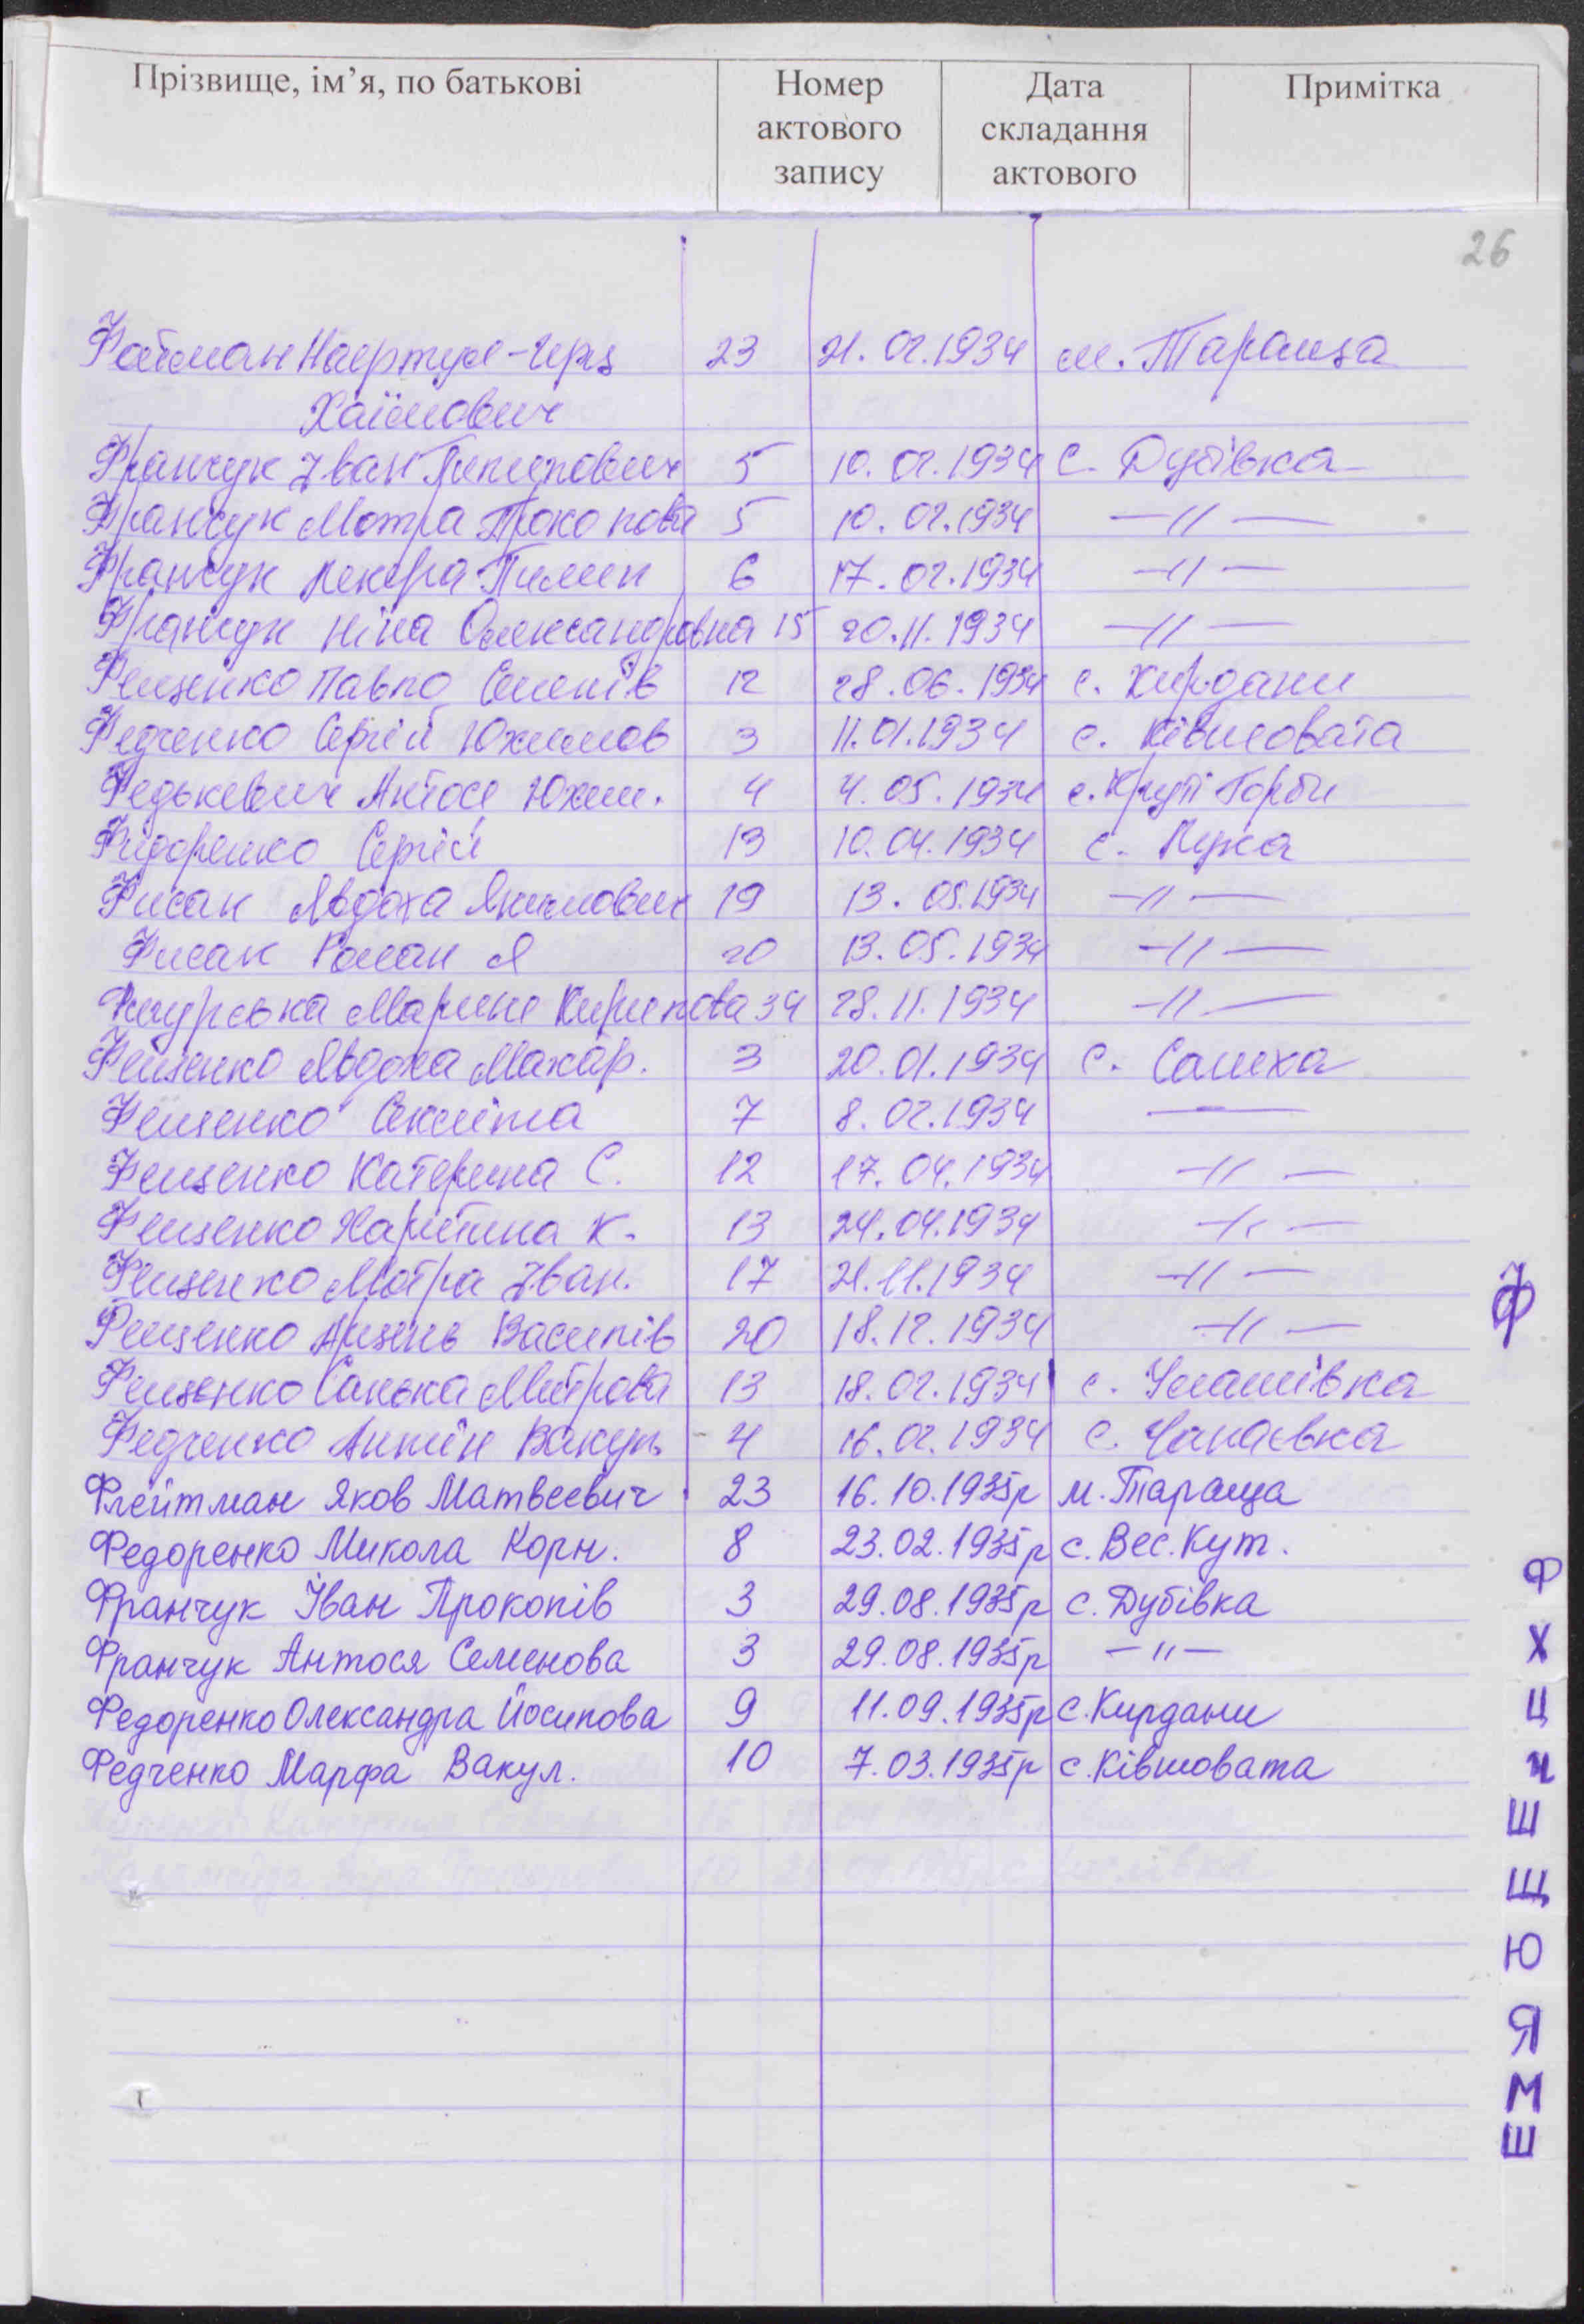 Прізвище, ім’я, по батькові
Номер актового запису
Дата складання актового
Примітка
26
Фатман 23 21.02.1934 м. Тараща
Хаїмович
Франчук Іван Пилипович 5 10.02.1934 с. Дубівка
Франчук Мотра Прокопова 5 10.02.1934 —//—
Франчук Пилип 6 17.02.1934 —//—
Франчук Ніна Олександровна 15 20.11.1934 —//—
Фещенко Павло Семенів 12 28.06.1934 с. Кирдани
Федченко Сергій Юхимов 3 11.01.1934 с. Ківшовата
Федькевич Антося Юхим. 4 4.05.1934 с. Круті Горби
Фидоренко Сергій 13 10.04.1934 с. Лука
Фисак Явдоха Якимович 19 13.05.1934 —//—
Фисак Роман Я 20 13.05.1934 —//—
Марине Кирилова 34 28.11.1934 —//—
Фещенко Явдоха Макар. 3 20.01.1934 с. Салиха
Фещенко Секліта 7 8.02.1934 —
Фещенко Катерина С. 12 17.04.1934 —//—
Фещенко Харитина К. 13 24.04.1934 —//—
Фещенко Мотра Іван. 17 21.11.1934 —//—
Фещенко Василів 20 18.12.1934 —//—
Фещенко Санька Митрова 13 18.02.1934 с. Улашівка
Федченко Антін Вакул. 4 16.02.1934 с. Чапаєвка
Флейтман Яков Матвеевич 23 16.10.1935р м. Тараща
Федоренко Микола Корн. 8 23.02.1935р с. Вес. Кут.
Франчук Іван Прокопів 3 29.08.1935р с. Дубівка
Франчук Антося Семенова 3 29.08.1935р —"—
Федоренко Олександра Йосипова 9 11.09.1935р с. Кирдани
Федченко Марфа Вакул. 10 7.03.1935р с. Ківшовата
Ф
Ф
Х
Ц
Ч
Ш
Щ
Ю
Я
М
Ш